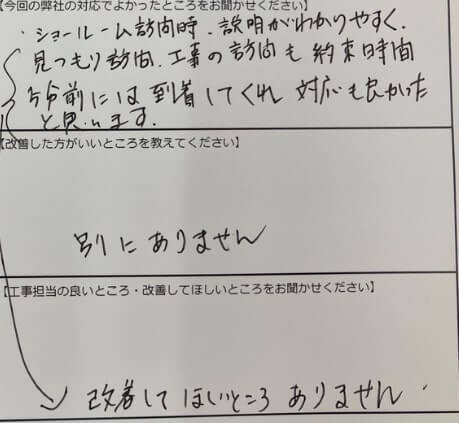 【今回の弊社の対応でよかったところをお聞かせください】
・ショールーム訪問時、説明がわかりやすく、
見つもり訪問、工事の訪問も約束時間
5分前には到着してくれ 対応も良かった
と思います.
【改善した方がいいところを教えてください】
別にありません
【工事担当の良いところ・改善してほしいところをお聞かせください】
改善してほしいところ ありません.